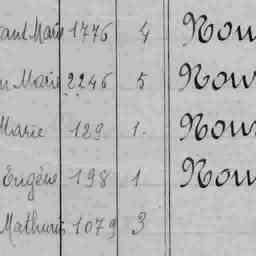 Marie 1776 4 Nou
Marie 2246 5 Nou
Marie 129 1. Nou
Eugène 198 1 Nou
Mathurin 1079 3